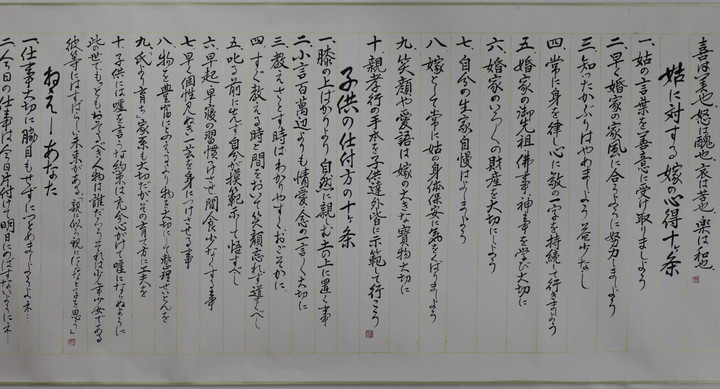 喜は美也 怒は醜也 哀は苦也 楽は和也
姑に対する嫁の心得十ヶ条
一、姑の言葉を善意に受け取りましょう
二、早く婚家の家風に合うように努力しましょう
三、知ったかぶりはやめましょう 益少なし
四、常に身を律し心に敬の一字を持続して行きましょう
五、婚家の御先祖 佛事 神事を学び大切に
六、婚家のいろいろの財産を大切にしよう
七、自分の生家自慢はよしましょう
八、嫁として常に姑の身体保安に気をくばりましょう
九、笑顔や愛語は嫁の大きな寳物大切に
十、親孝行の手本を子供達外皆に示範して行こう
子供の仕付方の十ヶ条
一、膝の上ばかりより自然に親しむ土の上に置く事
二、小言百萬辺よりも情愛念の一言 大切に
三、教えさとす時はわかりやすくおごそかに
四、すぐ教える時と間をおいて笑顔忘れず導くべし
五、叱る前に先ず自分が模範示して悟すべし
六、早起早寝の習慣けさせ間食少なくする事
七、早く個性見ぬき一芸を身につけさせる事
八、物を豊富にあたえるより物を大切にして整理せいとんを
九、氏より育ち 家系も大切だがその育て方に工夫を
十、子供には嘘を言うな約束は充分心がけて嘘にならぬように
此の世でもっともおそるべき人物は誰だろう それはなんと少女である
彼等にはすばらしい未来がある、親に似る親にだけどとも思う」
ねえーあなた
一、仕事大切に脇目もせずにつとめましょうよネ…
二、今日の仕事は今日片付けて明日にのばすないでネ…